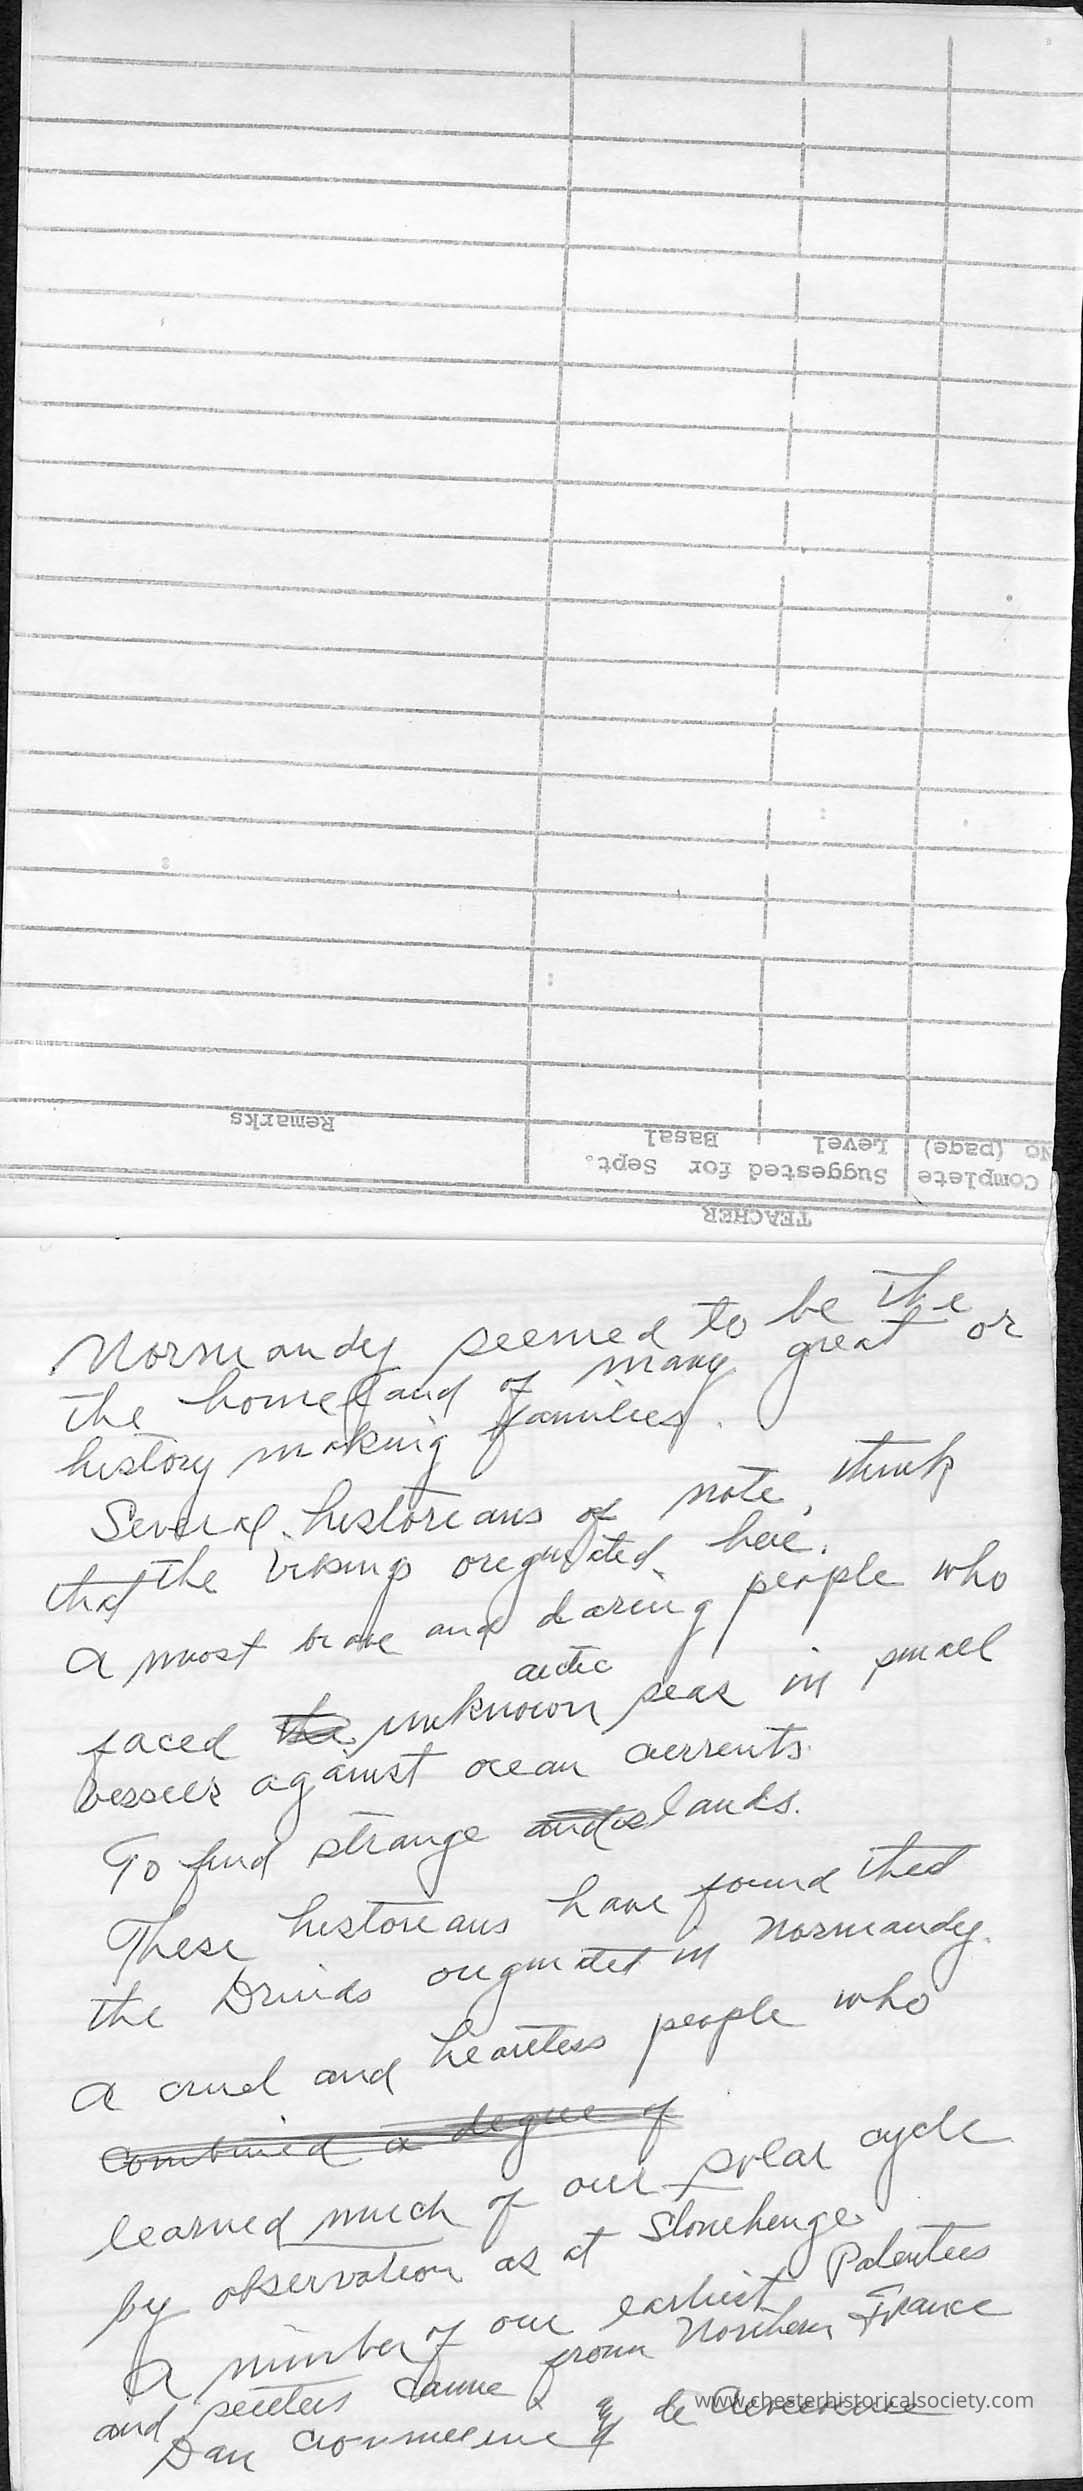 Remarks
Basal Level No (page)
Suggested for Sept. Complete
TEACHER
Normandy seemed to be the or
the homeland of many great
history making families.
Several historians of note, think
that the Vikings originated here.
a most brave and daring people who
arctic
faced the unknown seas in small
vessels against ocean currents.
To find strange lands.
These historians have found that
the Druids originated in Normandy.
a cruel and heartless people who
combined a degree of
learned much of our solar cycle
by observation as at Stonehenge
A number of our earliest Patentees
and settlers came from Northern France
Dan Crommeline & de
www.chesterhistoricalsociety.com